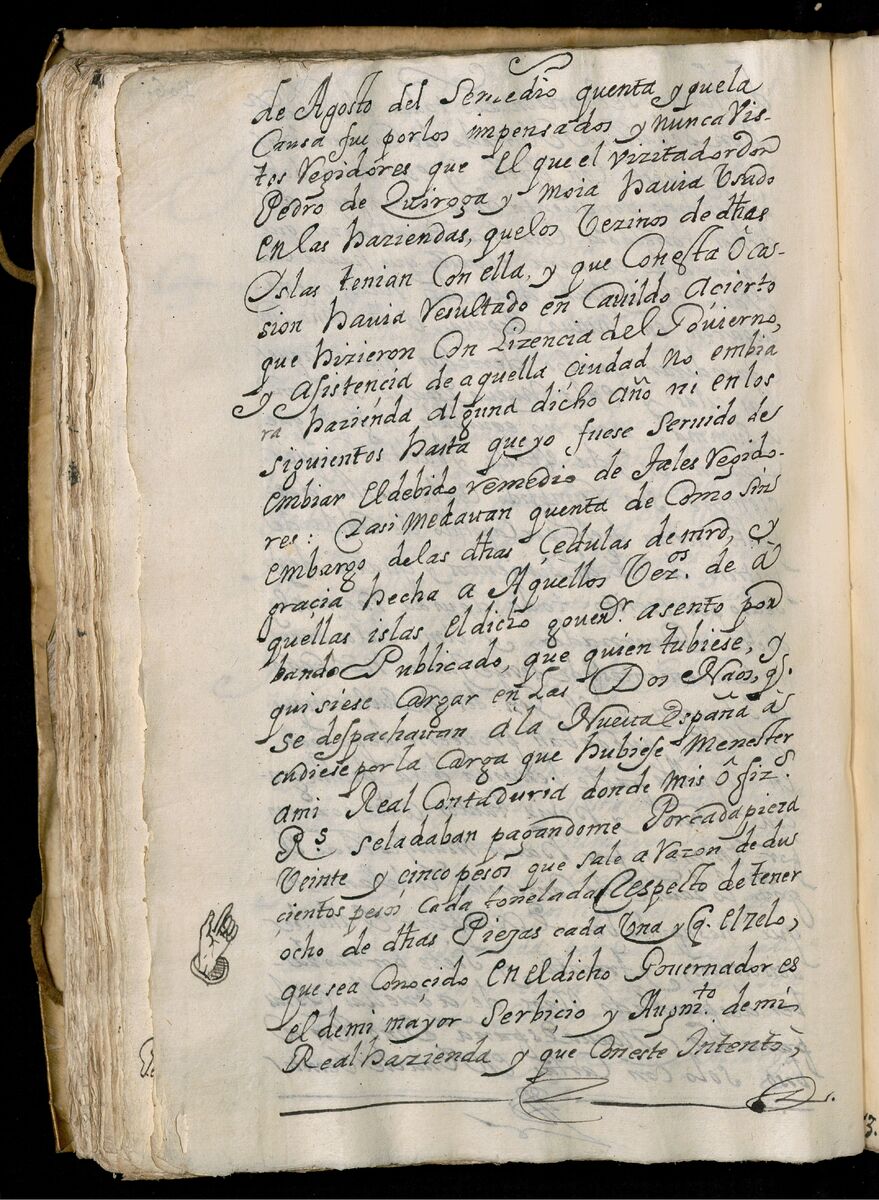 de Agosto del Semedio quenta y que la
Causa fue por los impensados y nunca Vis-
tos Vegidores que El que el Vizitador don
Pedro de Quiroga y Moia havia Usado
en las haziendas, que los Vezinos de dhas
Yslas tenian Con ella, y que Conesta Ôcas-
sion havia Vesultado en Cavildo Acierto
que hizieron Con Lizencia del Govierno,
y Asistencia de aquella Ciudad no embia
ra hazienda alguna dicho año ni en los
siguientos hasta que yo fuese Servido de
embiar El debido Vemedio de Tales Vegido-
res: Yasi Medavan quenta de Como sin
embargo de las dhas Cedulas de mrd, y
gracia hecha a Aquellos Vezos. de â
quellas islas El dicho govenr. asento por
bando Publicado, que quien tubiese, y
quisiese Cargar en Las Dos Naos, q.
se despachavan âla Nueva España âs
cudiese por la Carga que hubiese Menester
ami Real Contaduria donde mis Ôfizs.
Rs. seladaban pagandome Porcada pieza
Veinte y cinco pesos que sale a Vazon de dus
cientos pesos Cada tonelada Respecto de tener
ocho de dhas Piezas cada Una y q. El zelo,
que sea Conocido En el dicho Governador es
el demi mayor Serbicio y Augmto. demi
Real hazienda y que Coneste Intentô,